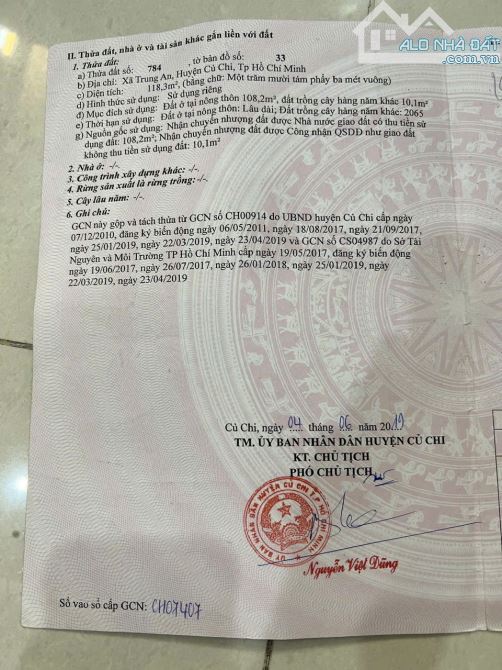 ALO NHÀ ĐẤT
.com.vn
II. Thửa đất, nhà ở và tài sản khác gắn liền với đất
1. Thửa đất:
a) Thửa đất số: 784 , tờ bản đồ số: 33
b) Địa chỉ: Xã Trung An, Huyện Củ Chi, Tp Hồ Chí Minh
c) Diện tích: 118,3m², (bằng chữ: Một trăm mười tám phẩy ba mét vuông)
d) Hình thức sử dụng: Sử dụng riêng
đ) Mục đích sử dụng: Đất ở tại nông thôn 108,2m², đất trồng cây hàng năm khác 10,1m²
e) Thời hạn sử dụng: Đất ở tại nông thôn: Lâu dài; Đất trồng cây hàng năm khác: 2065
g) Nguồn gốc sử dụng: Nhận chuyển nhượng đất được Nhà nước giao đất có thu tiền sử
dụng đất: 108,2m²; Nhận chuyển nhượng đất được Công nhận QSDĐ như giao đất
không thu tiền sử dụng đất: 10,1m²
2. Nhà ở: -/-
3. Công trình xây dựng khác: -/-
4. Rừng sản xuất là rừng trồng: -/-
5. Cây lâu năm: -/-
6. Ghi chú:
GCN này gộp và tách thửa từ GCN số CH00914 do UBND huyện Củ Chi cấp ngày
07/12/2010, đăng ký biến động ngày 06/05/2011, ngày 18/08/2017, ngày 21/09/2017,
ngày 25/01/2019, ngày 22/03/2019, ngày 23/04/2019 và GCN số CS04987 do Sở Tài
Nguyên và Môi Trường TP Hồ Chí Minh cấp ngày 19/05/2017, đăng ký biến động
ngày 19/06/2017, ngày 26/07/2017, ngày 26/01/2018, ngày 25/01/2019, ngày
22/03/2019, ngày 23/04/2019
Củ Chi, ngày 04 tháng 06 năm 2019
TM. ỦY BAN NHÂN DÂN HUYỆN CỦ CHI
KT. CHỦ TỊCH
PHÓ CHỦ TỊCH
ỦY BAN NHÂN DÂN HUYỆN CỦ CHI T.P HỒ CHÍ MINH
Nguyễn Việt Dũng
Số vào sổ cấp GCN: CH07407
ALO NHÀ ĐẤT
.com.vn